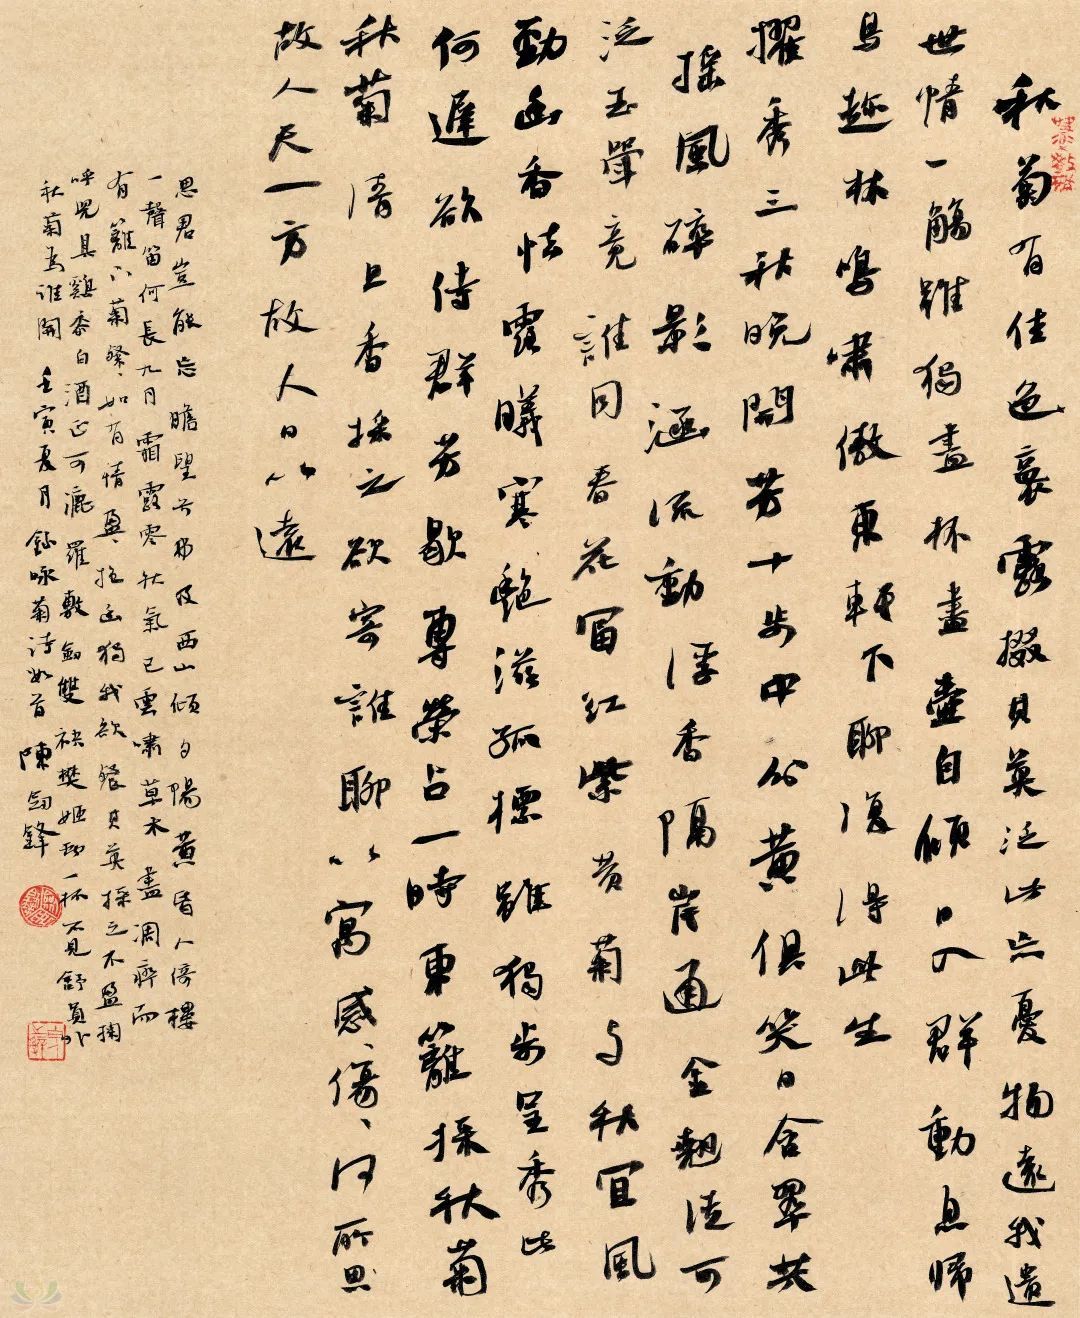 秋菊有佳色裛露掇其英泛此忘憂物遠我遺
世情一觴雖獨盡杯盡壺自傾日入群動息歸
鳥趨林鳴嘯傲東軒下聊復得此生
擢秀三秋晚開芳十步中分黄俱笑日含翠共
搖風碎影涵流動浮香隔岸通金翹徒可
泛玉斝竟誰同春花宜紅紫黄菊与秋宜風
勁幽香怯露曦寒艷滋孤標雖獨步呈秀此
何遲欲待群芳歇專榮占一時東籬採秋菊
秋菊清且香採之欲寄誰聊以寓感傷何所思
故人天一方故人日以遠
思君豈能忘瞻望兮弗及西山傾夕陽黄昏人倚樓
一聲笛何長九月霜露零秋氣已雲肅草木盡凋瘁而
有籬下菊粲如有情盈抱幽獨我欲餐其英採之不盈掬
呼兒具雞黍白酒正可漉羅敷釵雙袂樊姬勸一杯不見舒員外
秋菊為誰開 壬寅夏月錄詠菊詩如首 陳劍鋒